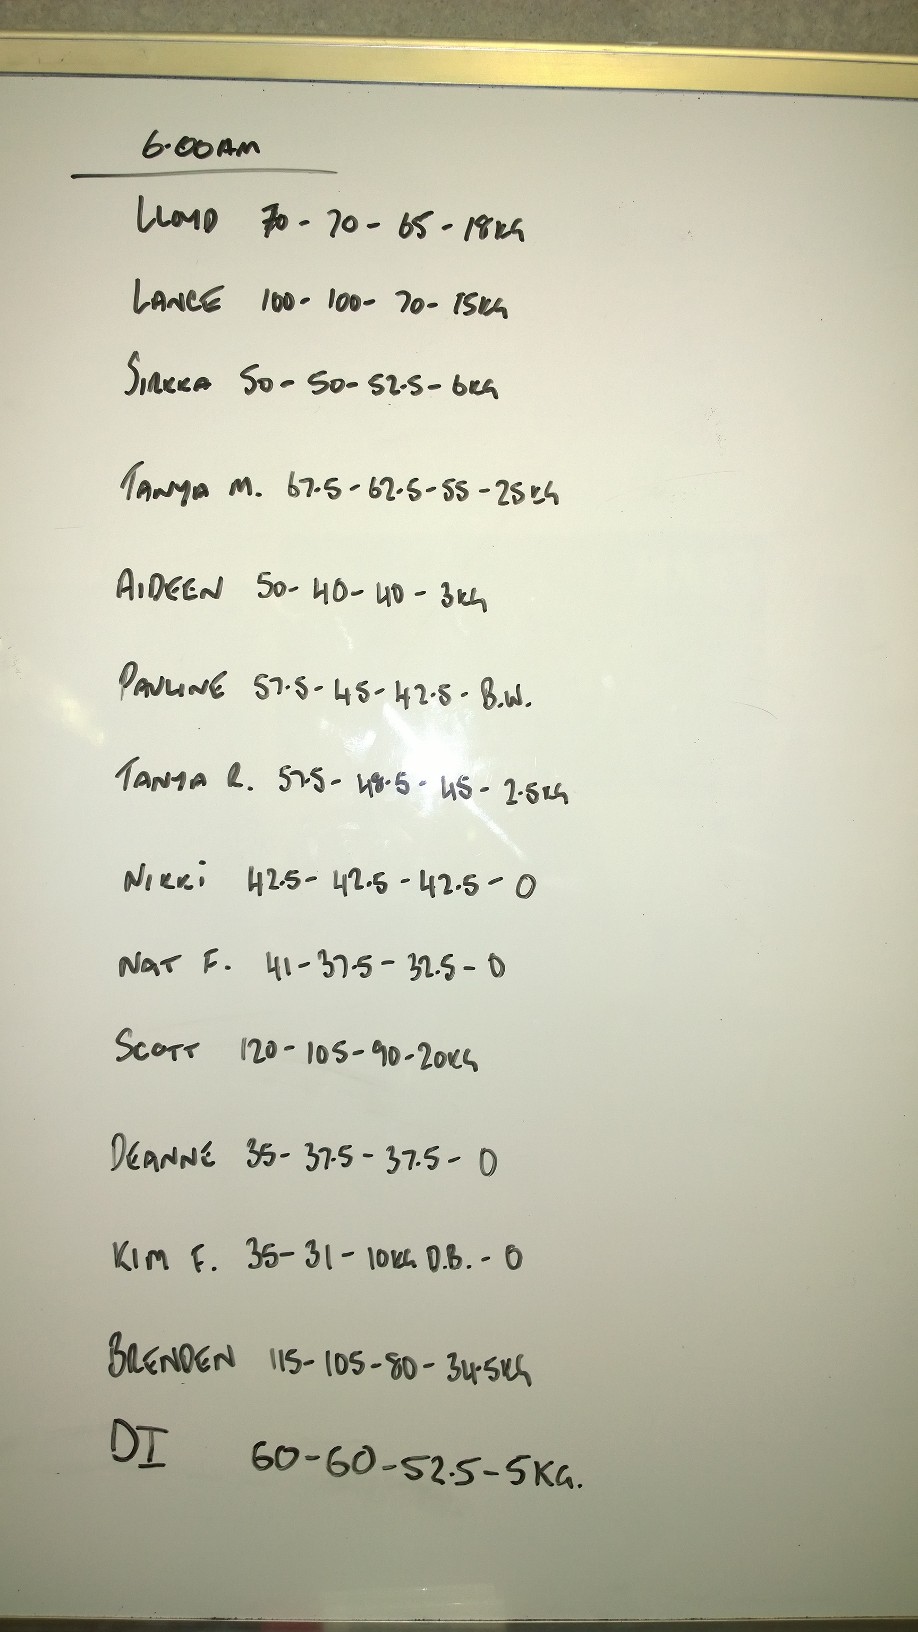 6.00AM
LLOYD 70 - 70 - 65 - 18KG
LANCE 100 - 100 - 70 - 15KG
SIRKKA 50 - 50 - 52.5 - 6KG
TANYA M. 67.5 - 62.5 - 55 - 25KG
AIDEEN 50 - 40 - 40 - 3KG
PAULINE 57.5 - 45 - 42.5 - B.W.
TANYA R. 57.5 - 48.5 - 45 - 2.5KG
NIKKi 42.5 - 42.5 - 42.5 - 0
NAT F. 41 - 37.5 - 32.5 - 0
SCOTT 120 - 105 - 90 - 20KG
DEANNE 35 - 37.5 - 37.5 - 0
KIM F. 35 - 31 - 10KG D.B. - 0
BRENDEN 115 - 105 - 80 - 34.5KG
DI 60 - 60 - 52.5 - 5KG.